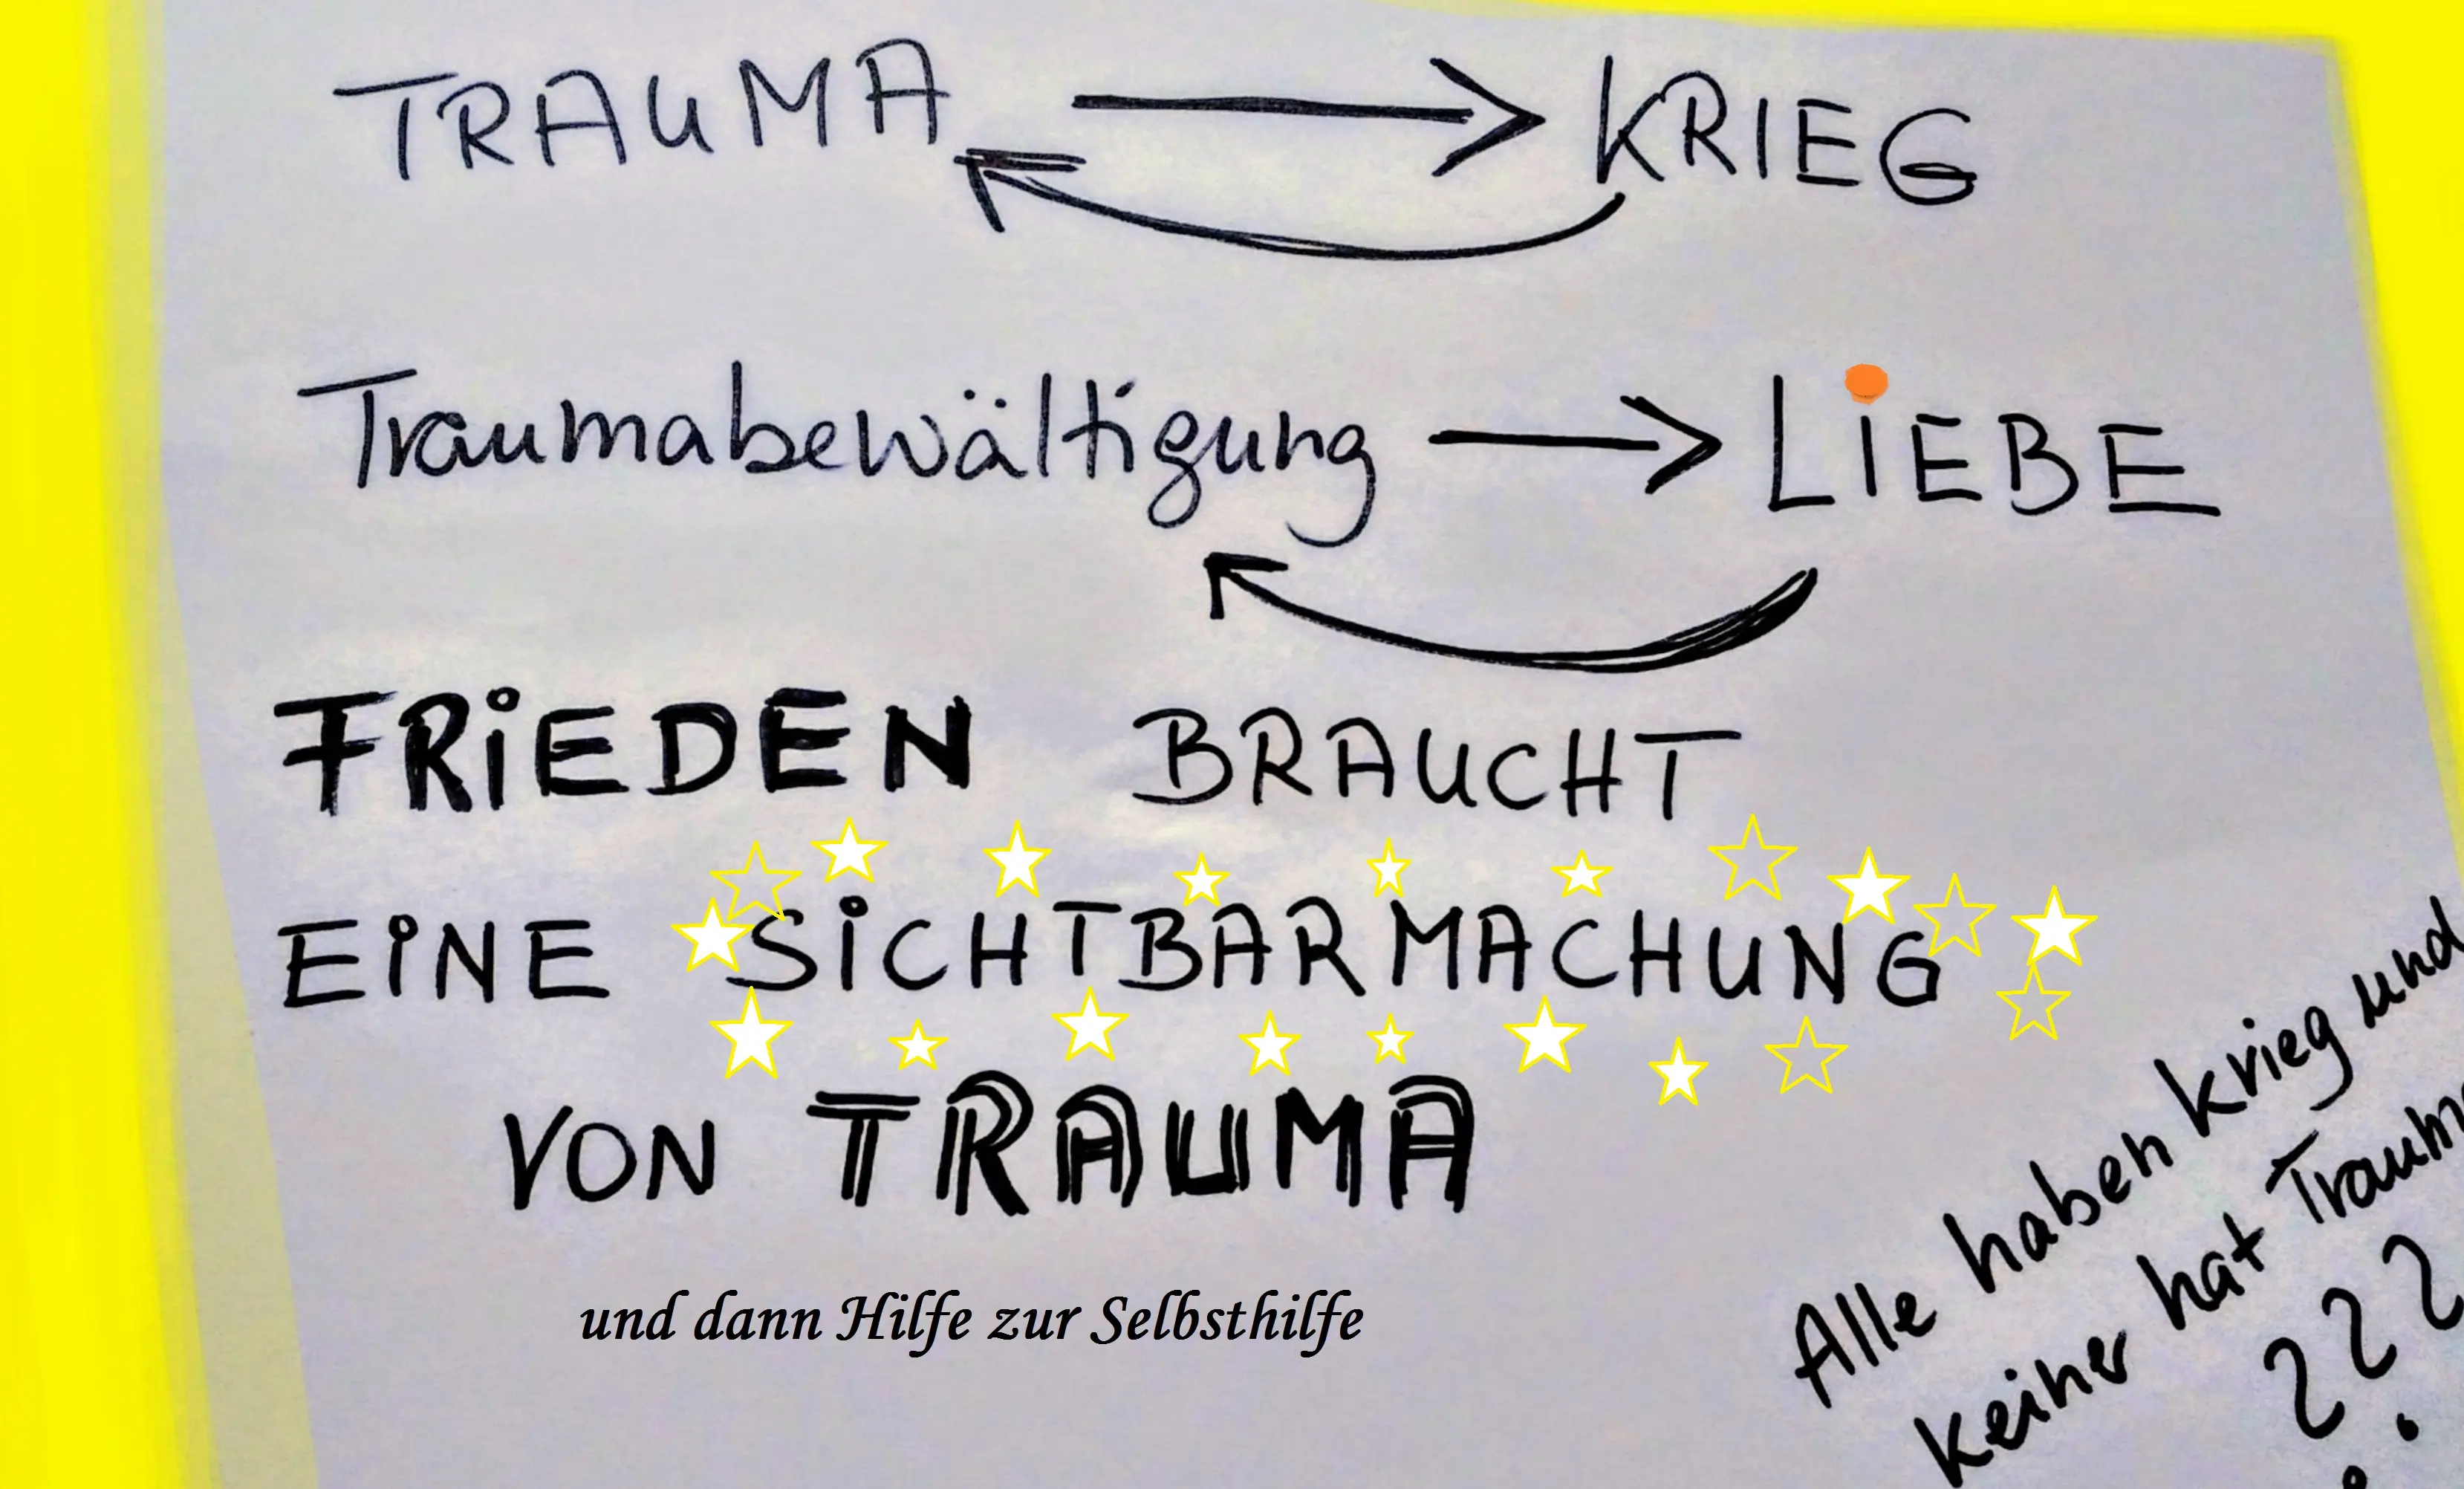 TRAUMA → KRIEG
Traumabewältigung → LiEBE
FRiEDEN BRAUCHT
EiNE SiCHTBARMACHUNG
VON TRAUMA
und dann Hilfe zur Selbsthilfe
Alle haben krieg und
keiner hat Trauma
???